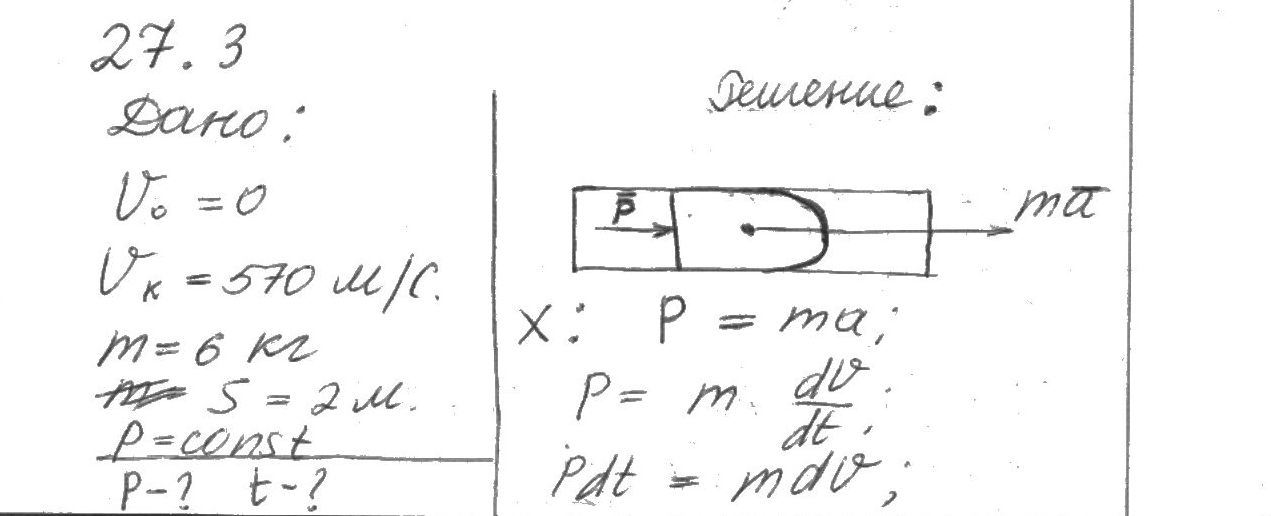 27.3
Дано:
V₀ = 0
Vₖ = 570 м/с.
m = 6 кг
S = 2 м.
P = const
P - ? t - ?
Решение:
P̄
mā
X: P = ma;
P = m dV/dt;
Pdt = mdV;